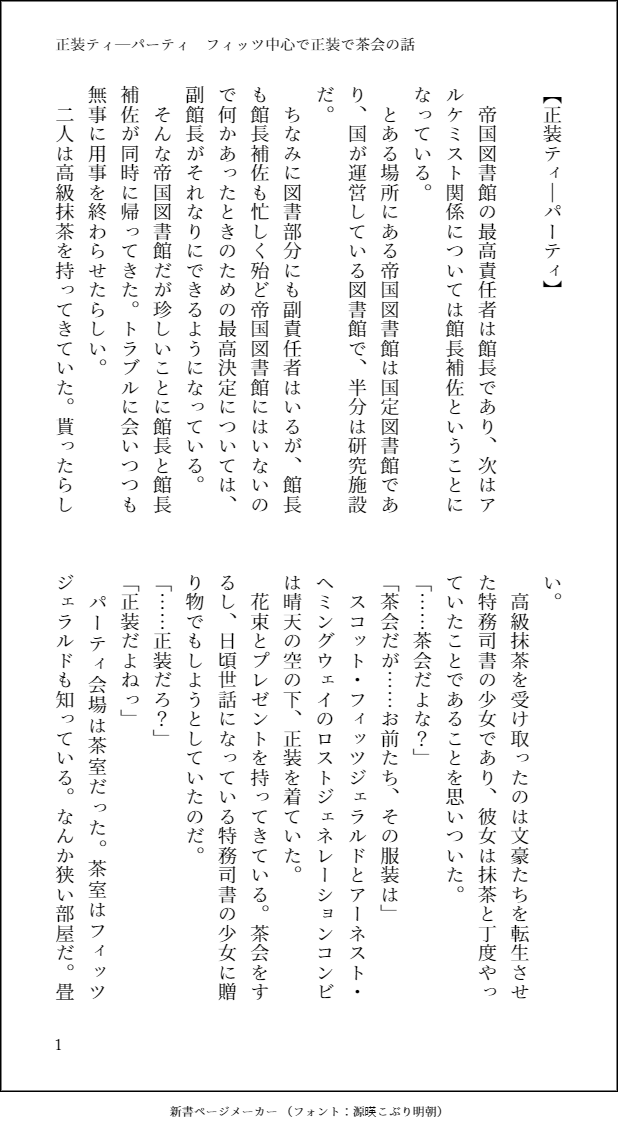 正装ティ―パーティ　フィッツ中心で正装で茶会の話
【正装ティ―パーティ】
　帝国図書館の最高責任者は館長であり、次はア
ルケミスト関係については館長補佐ということに
なっている。
　とある場所にある帝国図書館は国定図書館であ
り、国が運営している図書館で、半分は研究施設
だ。
　ちなみに図書部分にも副責任者はいるが、館長
も館長補佐も忙しく殆ど帝国図書館にはいないの
で何かあったときのための最高決定については、
副館長がそれなりにできるようになっている。
　そんな帝国図書館だが珍しいことに館長と館長
補佐が同時に帰ってきた。トラブルに会いつつも
無事に用事を終わらせたらしい。
　二人は高級抹茶を持ってきていた。貰ったらし
い。
　高級抹茶を受け取ったのは文豪たちを転生させ
た特務司書の少女であり、彼女は抹茶と丁度やっ
ていたことであることを思いついた。
「……茶会だよな？」
「茶会だが……お前たち、その服装は」
　スコット・フィッツジェラルドとアーネスト・
ヘミングウェイのロストジェネレーションコンビ
は晴天の空の下、正装を着ていた。
　花束とプレゼントを持ってきている。茶会をす
るし、日頃世話になっている特務司書の少女に贈
り物でもしようとしていたのだ。
「……正装だろ？」
「正装だよねっ」
　パーティ会場は茶室だった。茶室はフィッツ
ジェラルドも知っている。なんか狭い部屋だ。畳
1
新書ページメーカー（フォント：源暎こぶり明朝）